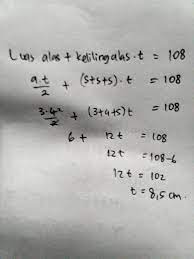 Luas alas + keliling alas . t = 108
a.t/2 + (s+s+s) . t = 108
3.4²/2 + (3+4+5) t = 108
6 + 12t = 108
12t = 108-6
12t = 102
t = 8,5 cm.